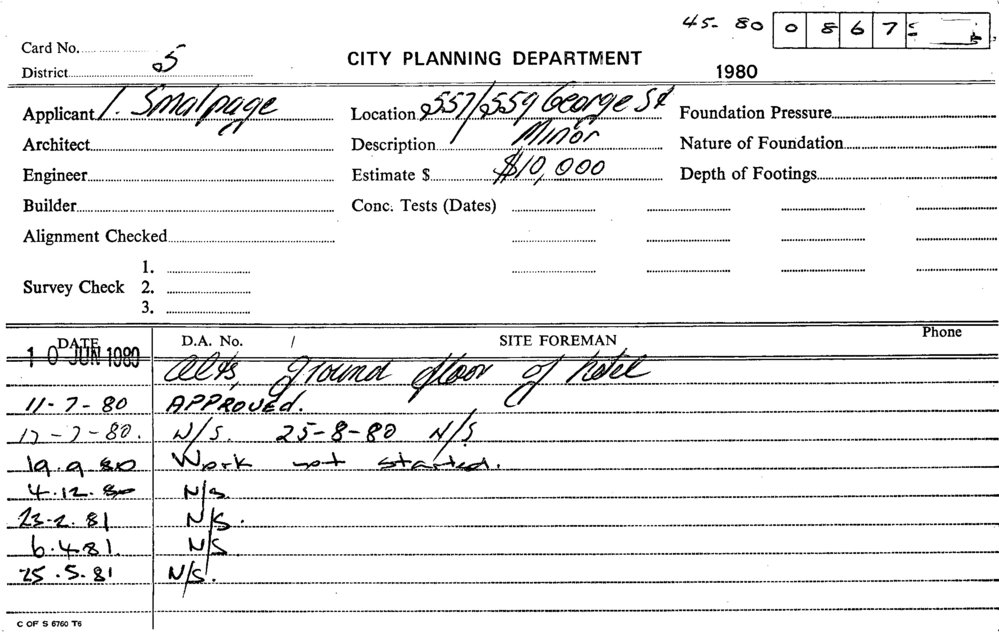 45- 80 0 8 6 7
Card No.
District 5
CITY PLANNING DEPARTMENT
1980
Applicant I. Smalpage
Location 557/559 George St
Foundation Pressure
Architect
Description Minor
Nature of Foundation
Engineer
Estimate $ $10,000
Depth of Footings
Builder
Conc. Tests (Dates)
Alignment Checked
Survey Check 1.
2.
3.
DATE D.A. No. SITE FOREMAN Phone
10 JUN 1980 Alts, ground floor of hotel
11-7-80 APPROVED.
17-7-80. N/S. 25-8-80 N/S.
19.9.80 Work not started.
4.12.80 N/S
23-2.81 N/S.
6.4.81. N/S
25.5.81 N/S.
C OF S 6760 T6